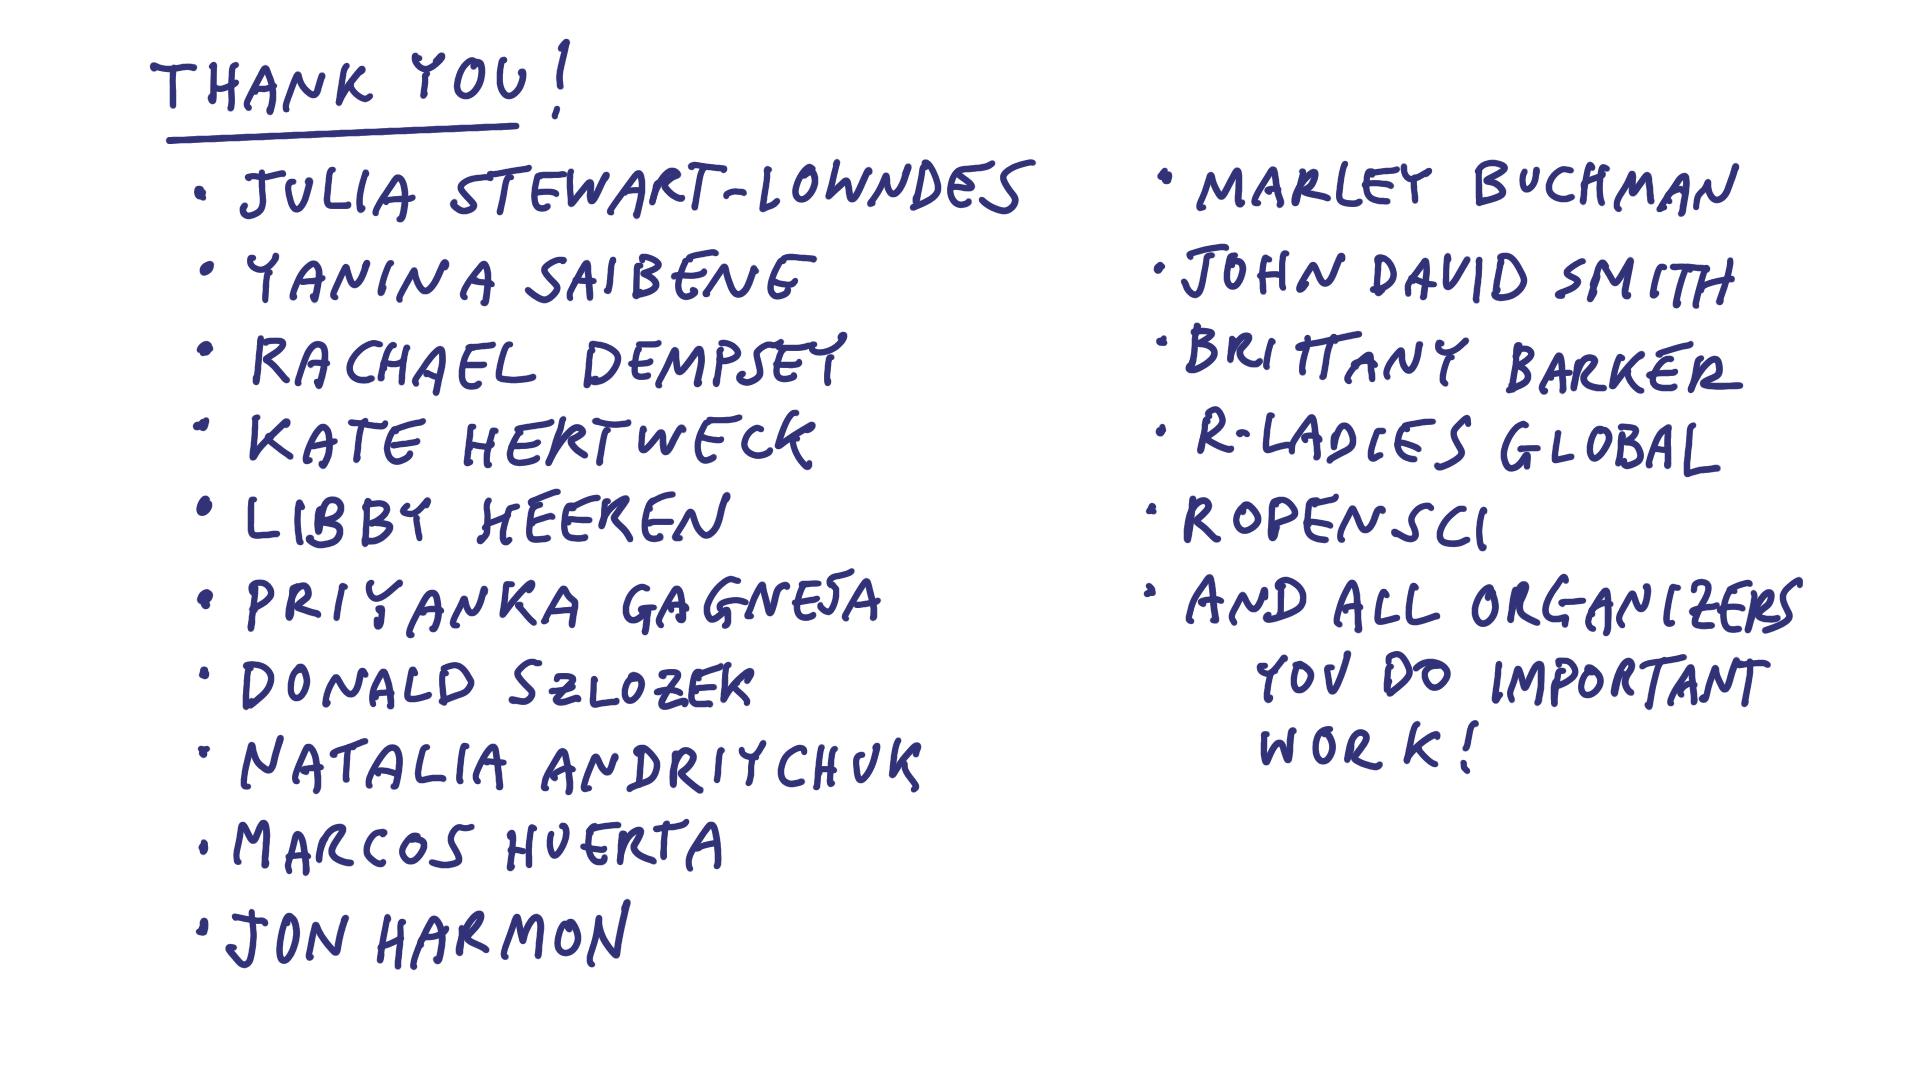 THANK YOU!
• JULIA STEWART-LOWNDES
• YANINA SAIBENE
• RACHAEL DEMPSEY
• KATE HERTWECK
• LIBBY HEEREN
• PRIYANKA GAGNEJA
• DONALD SZLOZEK
• NATALIA ANDRIYCHUK
• MARCOS HUERTA
• JON HARMON
• MARLEY BUCHMAN
• JOHN DAVID SMITH
• BRITTANY BARKER
• R-LADIES GLOBAL
• ROPENSCI
• AND ALL ORGANIZERS
YOU DO IMPORTANT
WORK!